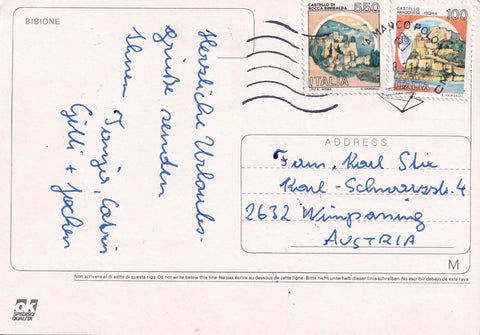 BIBIONE
CASTELLO DI
ROCCA SINIBALDA
550
ITALIA
CASTELLO
ARAGONESE - ISCHIA
100
ITALIA
MARCO POLO
Herzliche Urlaubs-
grüße senden
Ihnen
Tanja, Catrin
Gitti + Jochen
ADDRESS
Fam. Karl Stix
Karl-Schwarzstr. 4
2632 Wimpassing
AUSTRIA
M
Non scrivere al di sotto di questa riga-Do not write below this line-Ne pas écrire au dessous de cette ligne- Bitte nicht unterhalb dieser linie schreiben-No escribir debajo de esta raya
ak
SPEDISCI
QUALITÀ